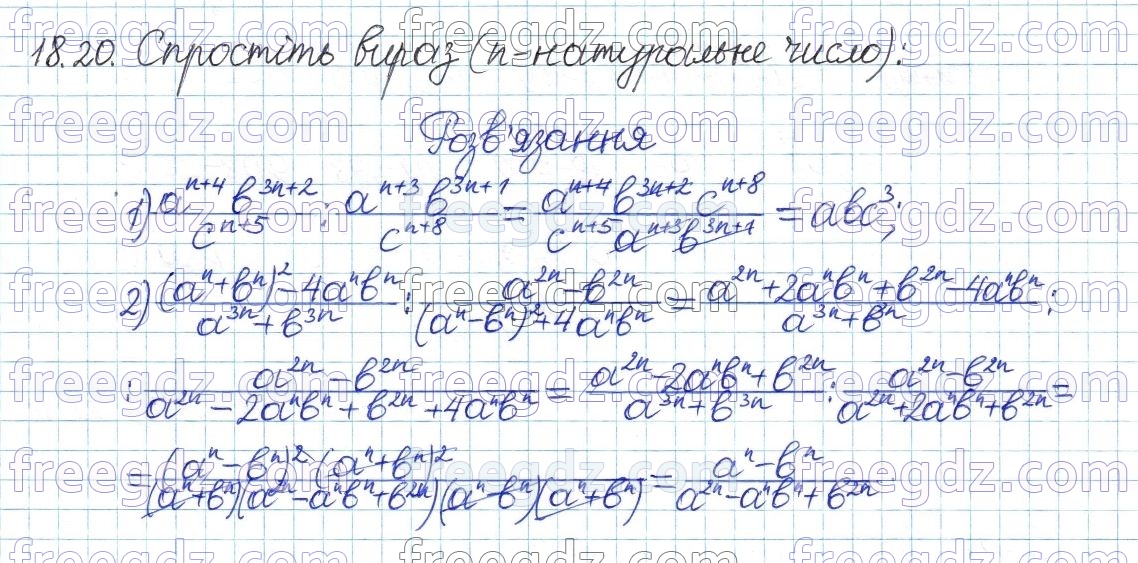 18.20. Спростіть вираз (n – натуральне число):
Розв'язання
1) a^{n+4} b^{3n+2} / c^{n+5} : a^{n+3} b^{3n+1} / c^{n+8} = a^{n+4} b^{3n+2} c^{n+8} / c^{n+5} a^{n+3} b^{3n+1} = abc^3;
2) (a^n + b^n)^2 - 4a^n b^n / a^{3n} + b^{3n} : a^{2n} - b^{2n} / (a^n - b^n)^2 + 4a^n b^n = a^{2n} + 2a^n b^n + b^{2n} - 4a^n b^n / a^{3n} + b^{3n} :
: a^{2n} - b^{2n} / a^{2n} - 2a^n b^n + b^{2n} + 4a^n b^n = a^{2n} - 2a^n b^n + b^{2n} / a^{3n} + b^{3n} : a^{2n} - b^{2n} / a^{2n} + 2a^n b^n + b^{2n} =
= (a^n - b^n)^2 · (a^n + b^n)^2 / (a^n + b^n)(a^{2n} - a^n b^n + b^{2n})(a^n - b^n)(a^n + b^n) = a^n - b^n / a^{2n} - a^n b^n + b^{2n}
freegdz.com